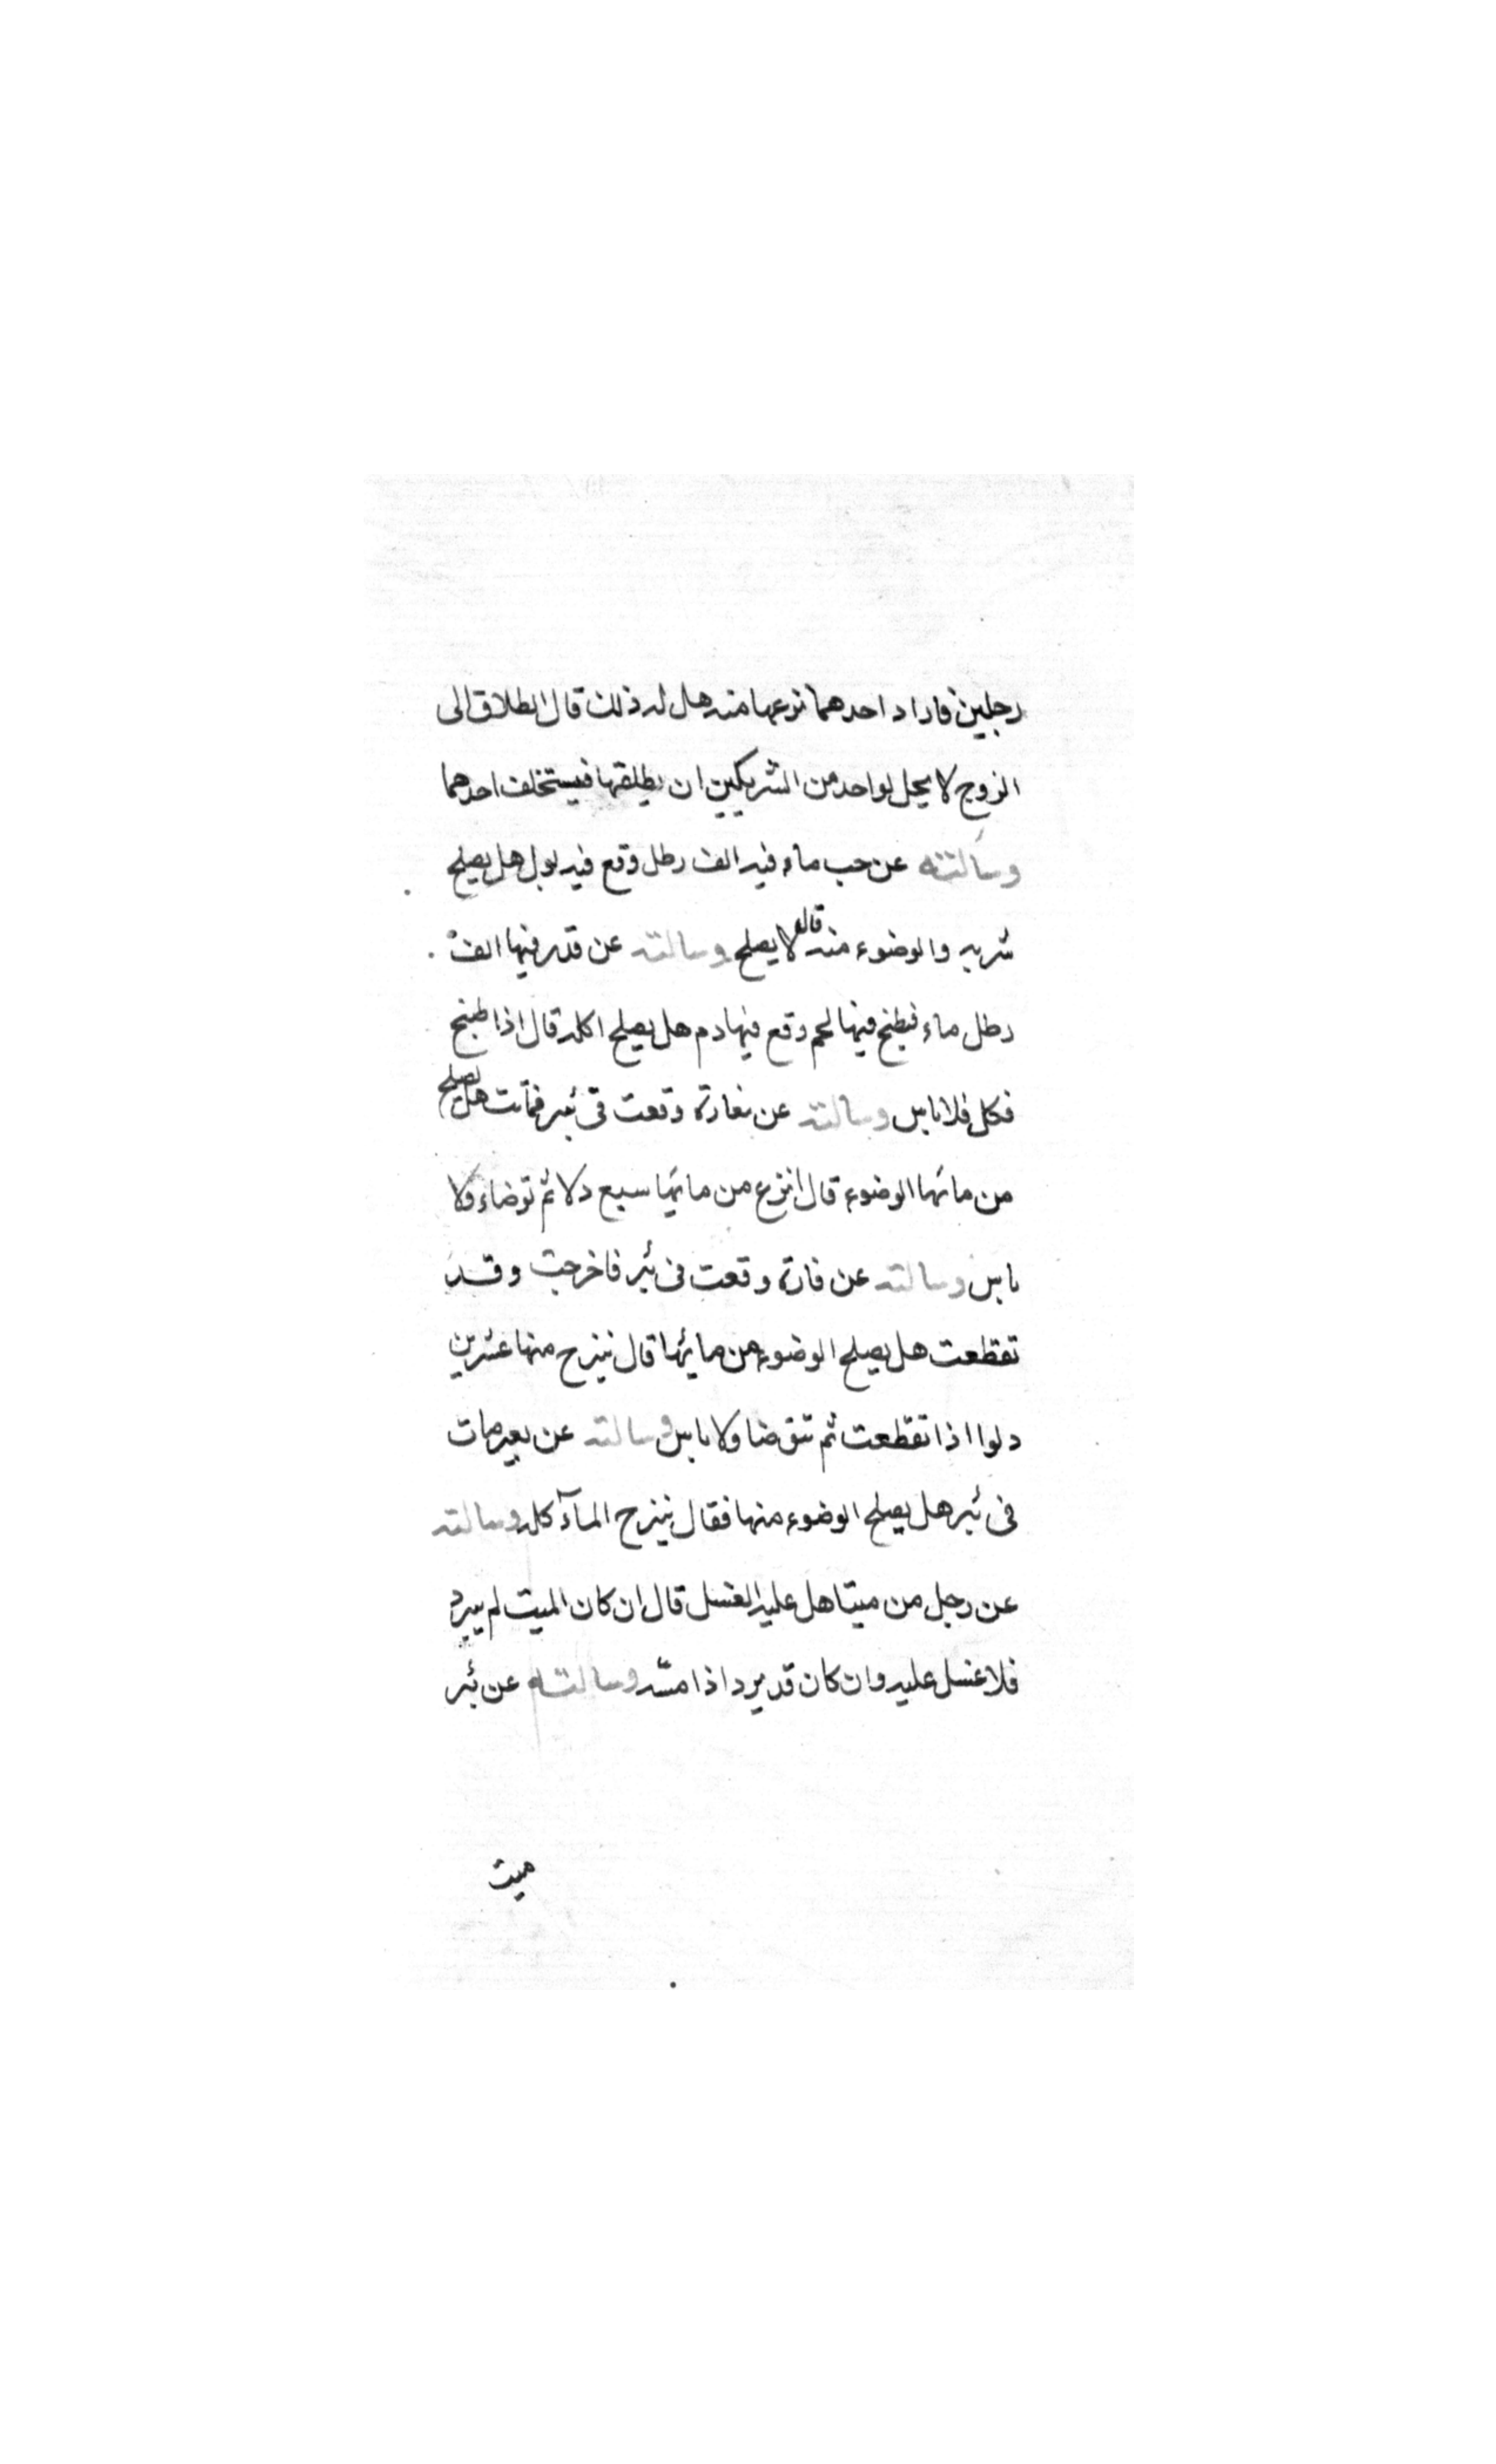 رجلين فاراد احدهما نزعها منه هل له ذلك قال الطلاق الى
الزوج لا يحل لواحد من الشريكين ان يطلقها فيستخلف احدهما
وسألته عن حب ماء فيه الف رطل وقع فيه بول هل يصلح
شربه والوضوء منه قال لا يصلح وسالته عن قدر فيها الف
رطل ماء فطبخ فيها لحم وقع فيها دم هل يصلح اكله قال اذا طبخ
فكل فلا باس وسالته عن فارة وقعت في بئر فماتت هل يصلح
من مائها الوضوء قال انزع من مائها سبع دلا ثم توضاء ولا
باس وسالته عن فارة وقعت في بئر فاخرجت وقد
تقطعت هل يصلح الوضوء من مائها قال ينزح منها عشرين
دلوا اذا تقطعت ثم تتوضا ولا باس وسالته عن بعير مات
في بئر هل يصلح الوضوء منها فقال ينزح المآء كله وسالته
عن رجل مس ميتا هل عليه الغسل قال ان كان الميت لم يبرد
فلا غسل عليه وان كان قد برد اذا مسّه وسالته عن بئر
ميت